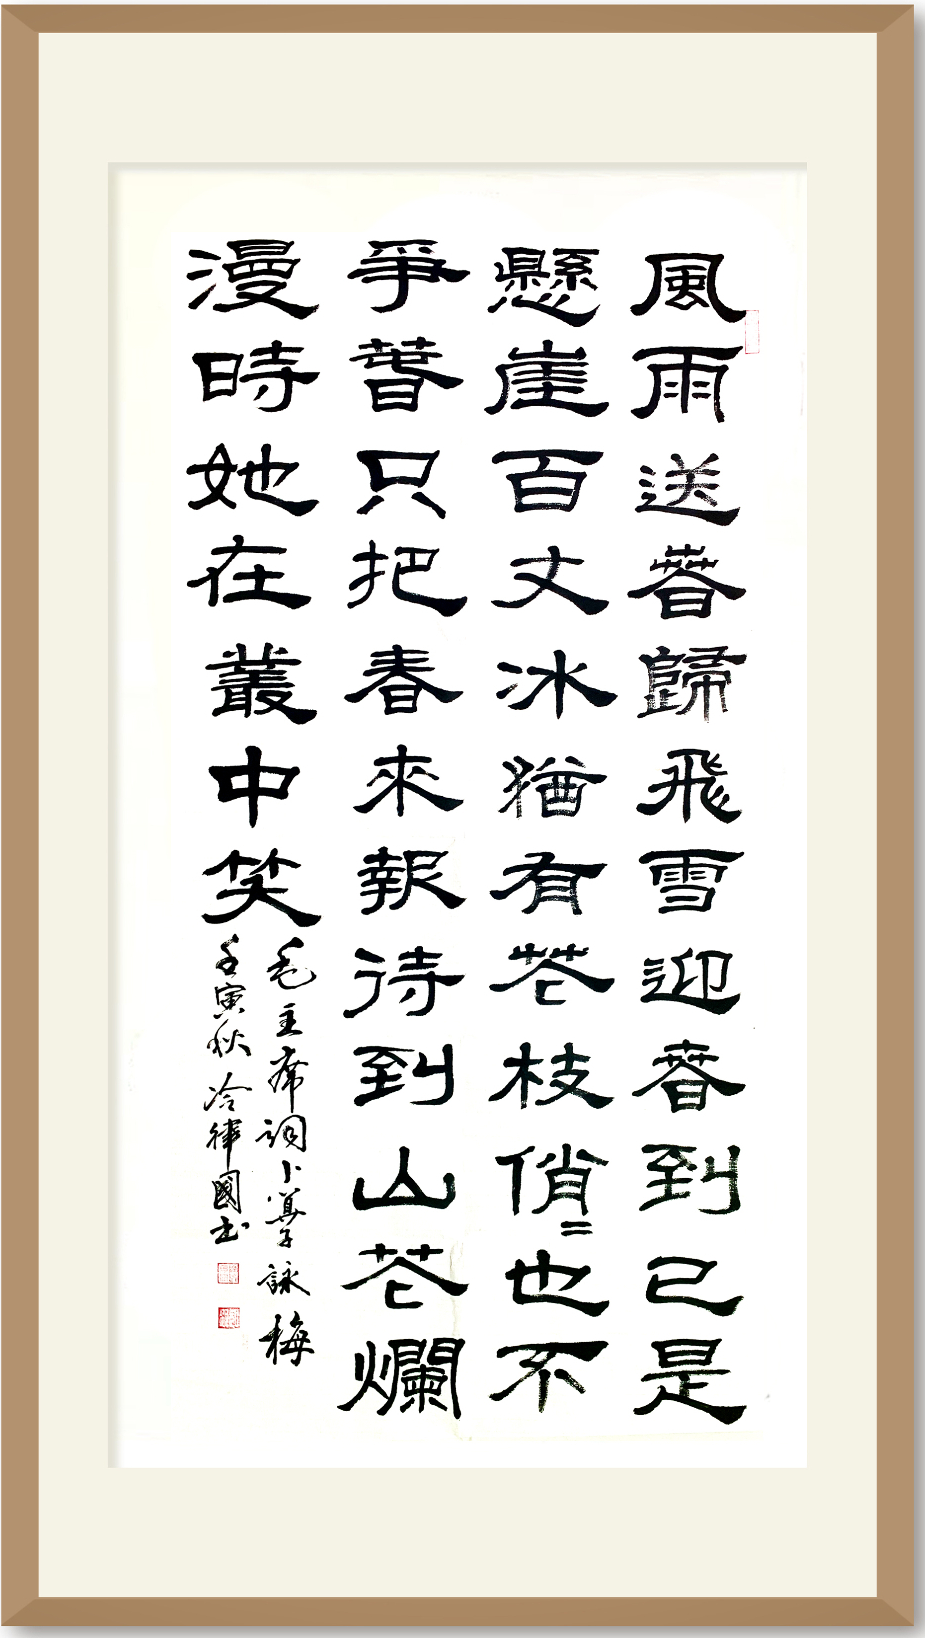 風雨送春歸飛雪迎春到已是
懸崖百丈冰猶有花枝俏〻也不
爭春只把春來報待到山花爛
漫時她在叢中笑
毛主席詞卜算子詠梅
壬寅秋冷律國书